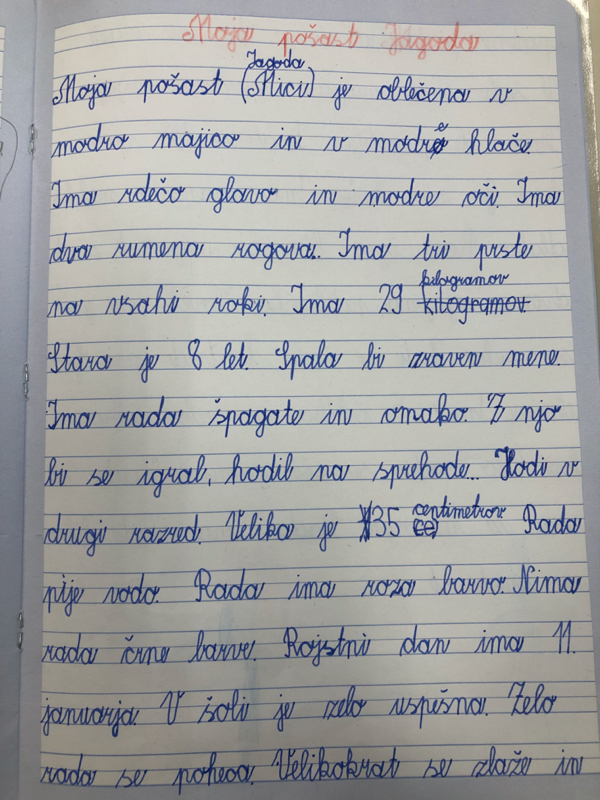 Moja pošast Jagoda
Jagoda
Moja pošast (Mici) je oblečena v
modro majico in v modre hlače.
Ima rdečo glavo in modre oči. Ima
dva rumena rogova. Ima tri prste
kilogramov
na vsahi roki. Ima 29 kilogramov.
Stara je 8 let. Spala bi zraven mene.
Ima rada špagate in omako. Z njo
bi se igral, hodil na sprehode... Hodi v
centimetrov
drugi razred. Velika je 135 Rada
pije vodo. Rada ima roza barvo. Nima
rada črne barve. Rojstni dan ima 11.
januarja. V šoli je zelo uspešna. Zelo
rada se poheca. Velikokrat se zlaže in